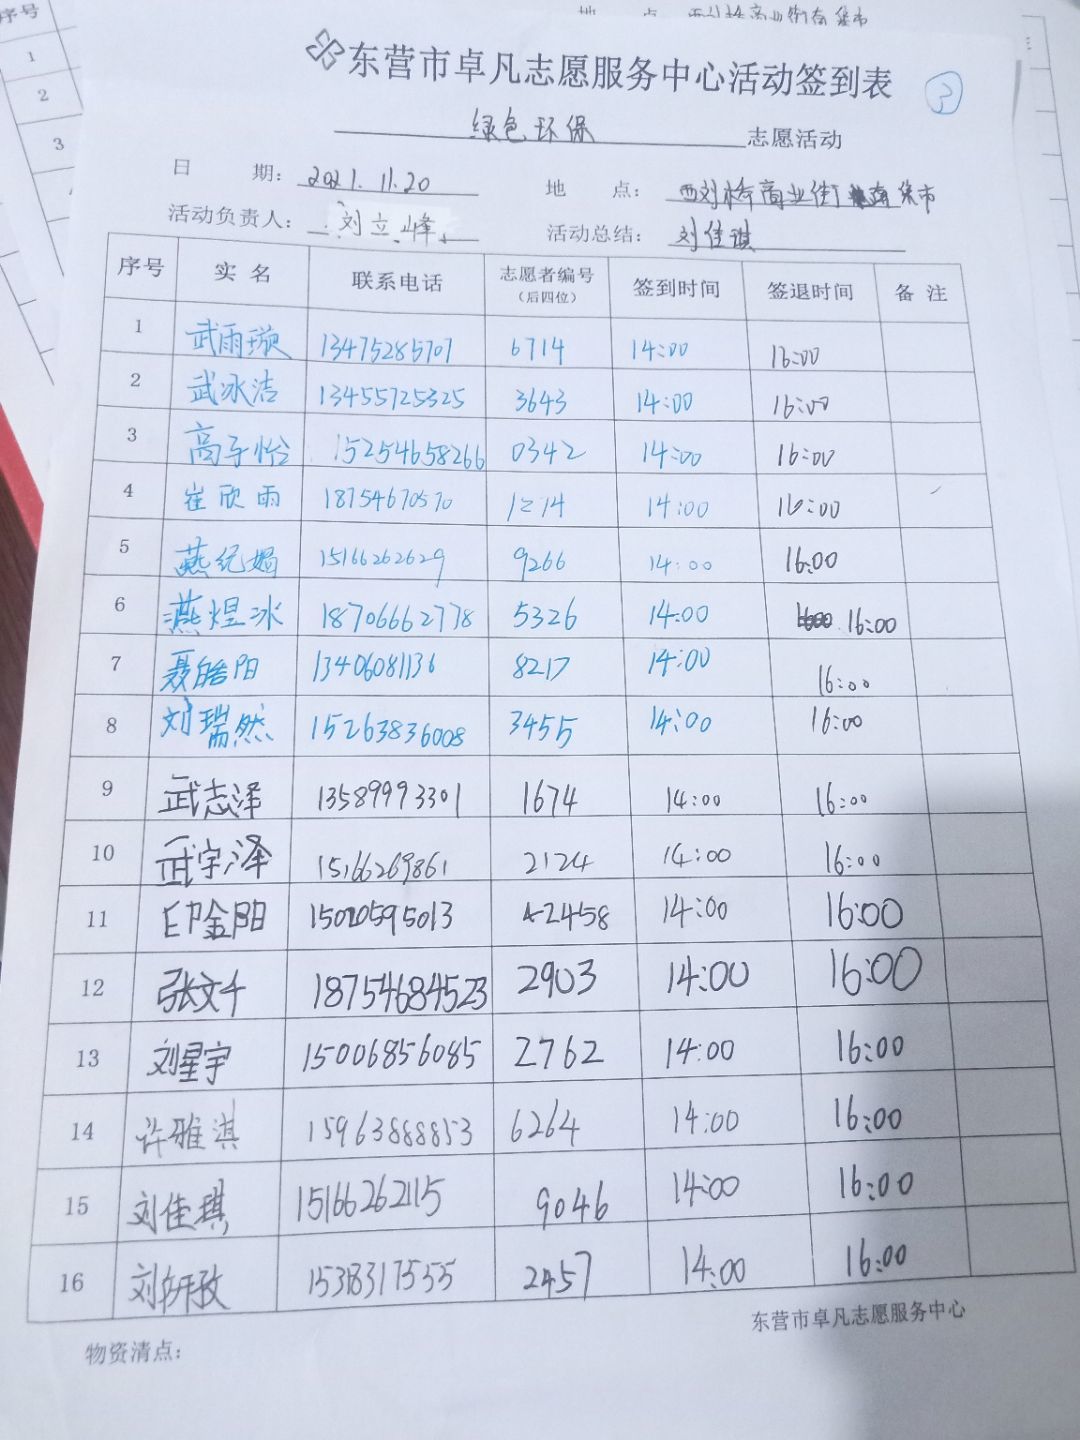 东营市卓凡志愿服务中心活动签到表
③
绿色环保 志愿活动
日 期: 2021.11.20 地 点: 西刘桥商业街南集市
活动负责人: 刘立峰 活动总结: 刘佳琪
序号 实名 联系电话 志愿者编号(后四位) 签到时间 签退时间 备注
1 武雨璇 13475285707 6714 14:00 16:00
2 武冰洁 13455725325 3643 14:00 16:00
3 高子怡 15254658266 0342 14:00 16:00
4 崔欣雨 18754670570 1214 14:00 16:00
5 燕纪娟 15166262629 9266 14:00 16:00
6 燕煜冰 18706662778 5326 14:00 16:00
7 聂皓阳 13406081136 8217 14:00 16:00
8 刘瑞然 15263836008 3455 14:00 16:00
9 武志泽 13589993301 1674 14:00 16:00
10 武宇泽 15166269861 2124 14:00 16:00
11 印金阳 15020595013 2458 14:00 16:00
12 张文千 18754684523 2903 14:00 16:00
13 刘星宇 15006856085 2762 14:00 16:00
14 许雅淇 15963888853 6264 14:00 16:00
15 刘佳琪 15166262115 9046 14:00 16:00
16 刘妍孜 15318317555 2457 14:00 16:00
东营市卓凡志愿服务中心
物资清点: